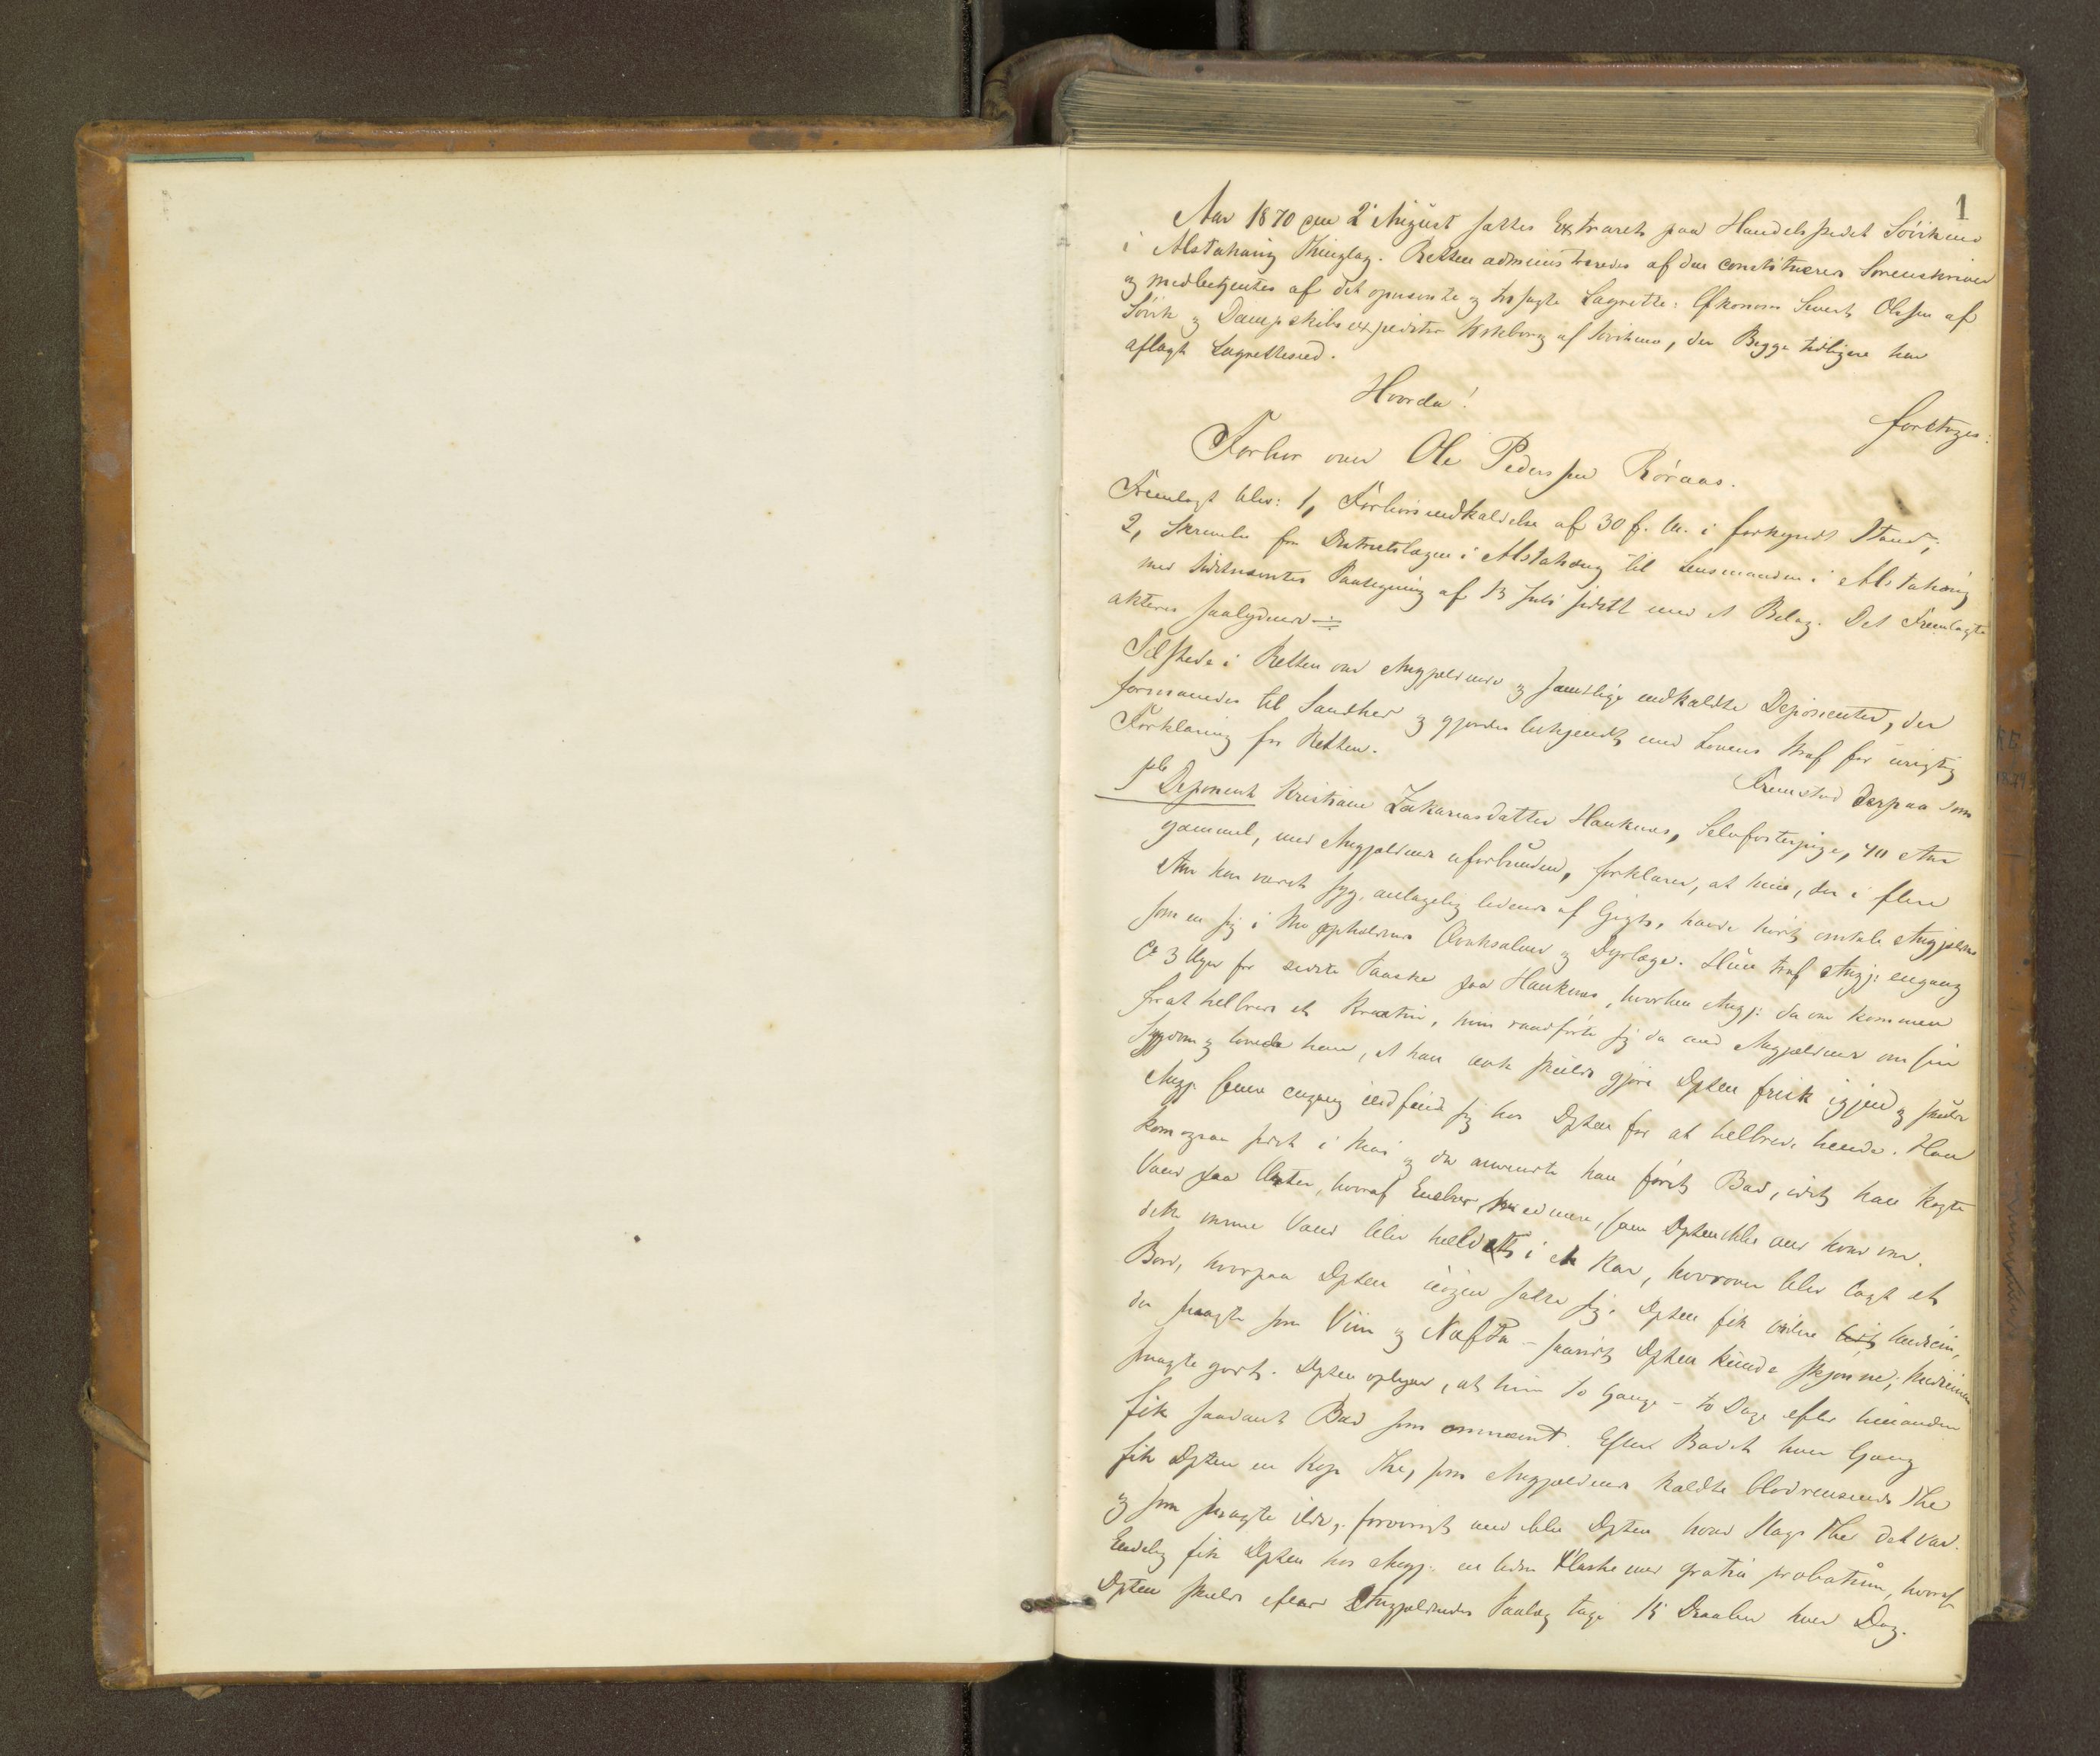 1
Aar 1870 den 2 August sattes Extraret paa Handelsstedet Søvikens
i Alstahaug Thinglag. Retten administreredes af den constituerede Sorenskriver
og medbetjentes af det opnævnte og tilsagte Lagrette: Økonom Sivert Olsen af
Søvik og Dampskibsexpeditør af Søviknes, der Begge tidligere har
aflagt Lagretteseed.
Hvorda!
foretoges:
Forhør over Ole Pederssen Røraas.
Fremlagt blev: 1, Forhørsindkaldelse af 30 f. M. i forkyndt Stand;
2, Skrivelse fra Districtslægen i Alstahaug til Lensmanden i Alstahaug
med Sidstnævntes Paategning af 13 Juli sidstl med et Bilag. Det Fremlagte
akteres saalydende ÷
Tilstede i Retten var Angjældende og samtlige indkaldte Deponenter, der
formanedes til Sandhed og gjordes bekjendt med Lovens Straf for urigtig
Forklaring for Retten.
Fremstod derpaa som
1ste Deponent Kristiane Zakariasdatter Hauknes, Selvfosterpige, 40 Aar
gammel, med Angjældende uforbunden, forklarer, at hun, der i flere
Aar har været syg, antagelig lidende af Gigt, havde hørt omtale Angjældende
som en sig i opholdende Qvaksalver og Dyrlæge. Hun traf Angj: engang
Ca 3 Uger før sidste Paaske paa Hauknes, hvorhen Angj: da var kommen
for at helbrede et Kreatur, hun raadførte sig da med Angjældende om sin
Sygdom og lovede han, at han nok skulde gjøre Dpten frisk igjen og skulde
Angj. senere engang indfinde sig hos Dpten for at helbrede hende. Han
kom ogsaa sidst i Mai og da anvendte han først Bad, idet han kogte
Vand paa Urter, hvoraf Eneber, med mere, som Dpten ikke ved hvad var.
dette varme Vand blev heldt i et Kar, hvorover blev lagt et
Bord, hvorpaa Dpten nøgen satte sig. Dpten fik videre Medicin,
der smagte som Viin og Nafta – saavidt Dpten kunde skjønne; Medicinen
smagte godt. Dpten oplyser, at hun to Gange – to Dage efter hinanden
fik saadant Bad som ommeldt. Efter Badet hver Gang
fik Dpten en Kop The, som Angjældende kaldte blodrensende The
og som smagte ilde, forøvrigt ved ikke Dpten hvad Slags The det var.
Endelig fik Dpten hos Angj. en liden Flaske med gratia probatum, hvoraf
Dpten skulde efter Angjældendes Paalæg tage 15 Draaber hver Dag.